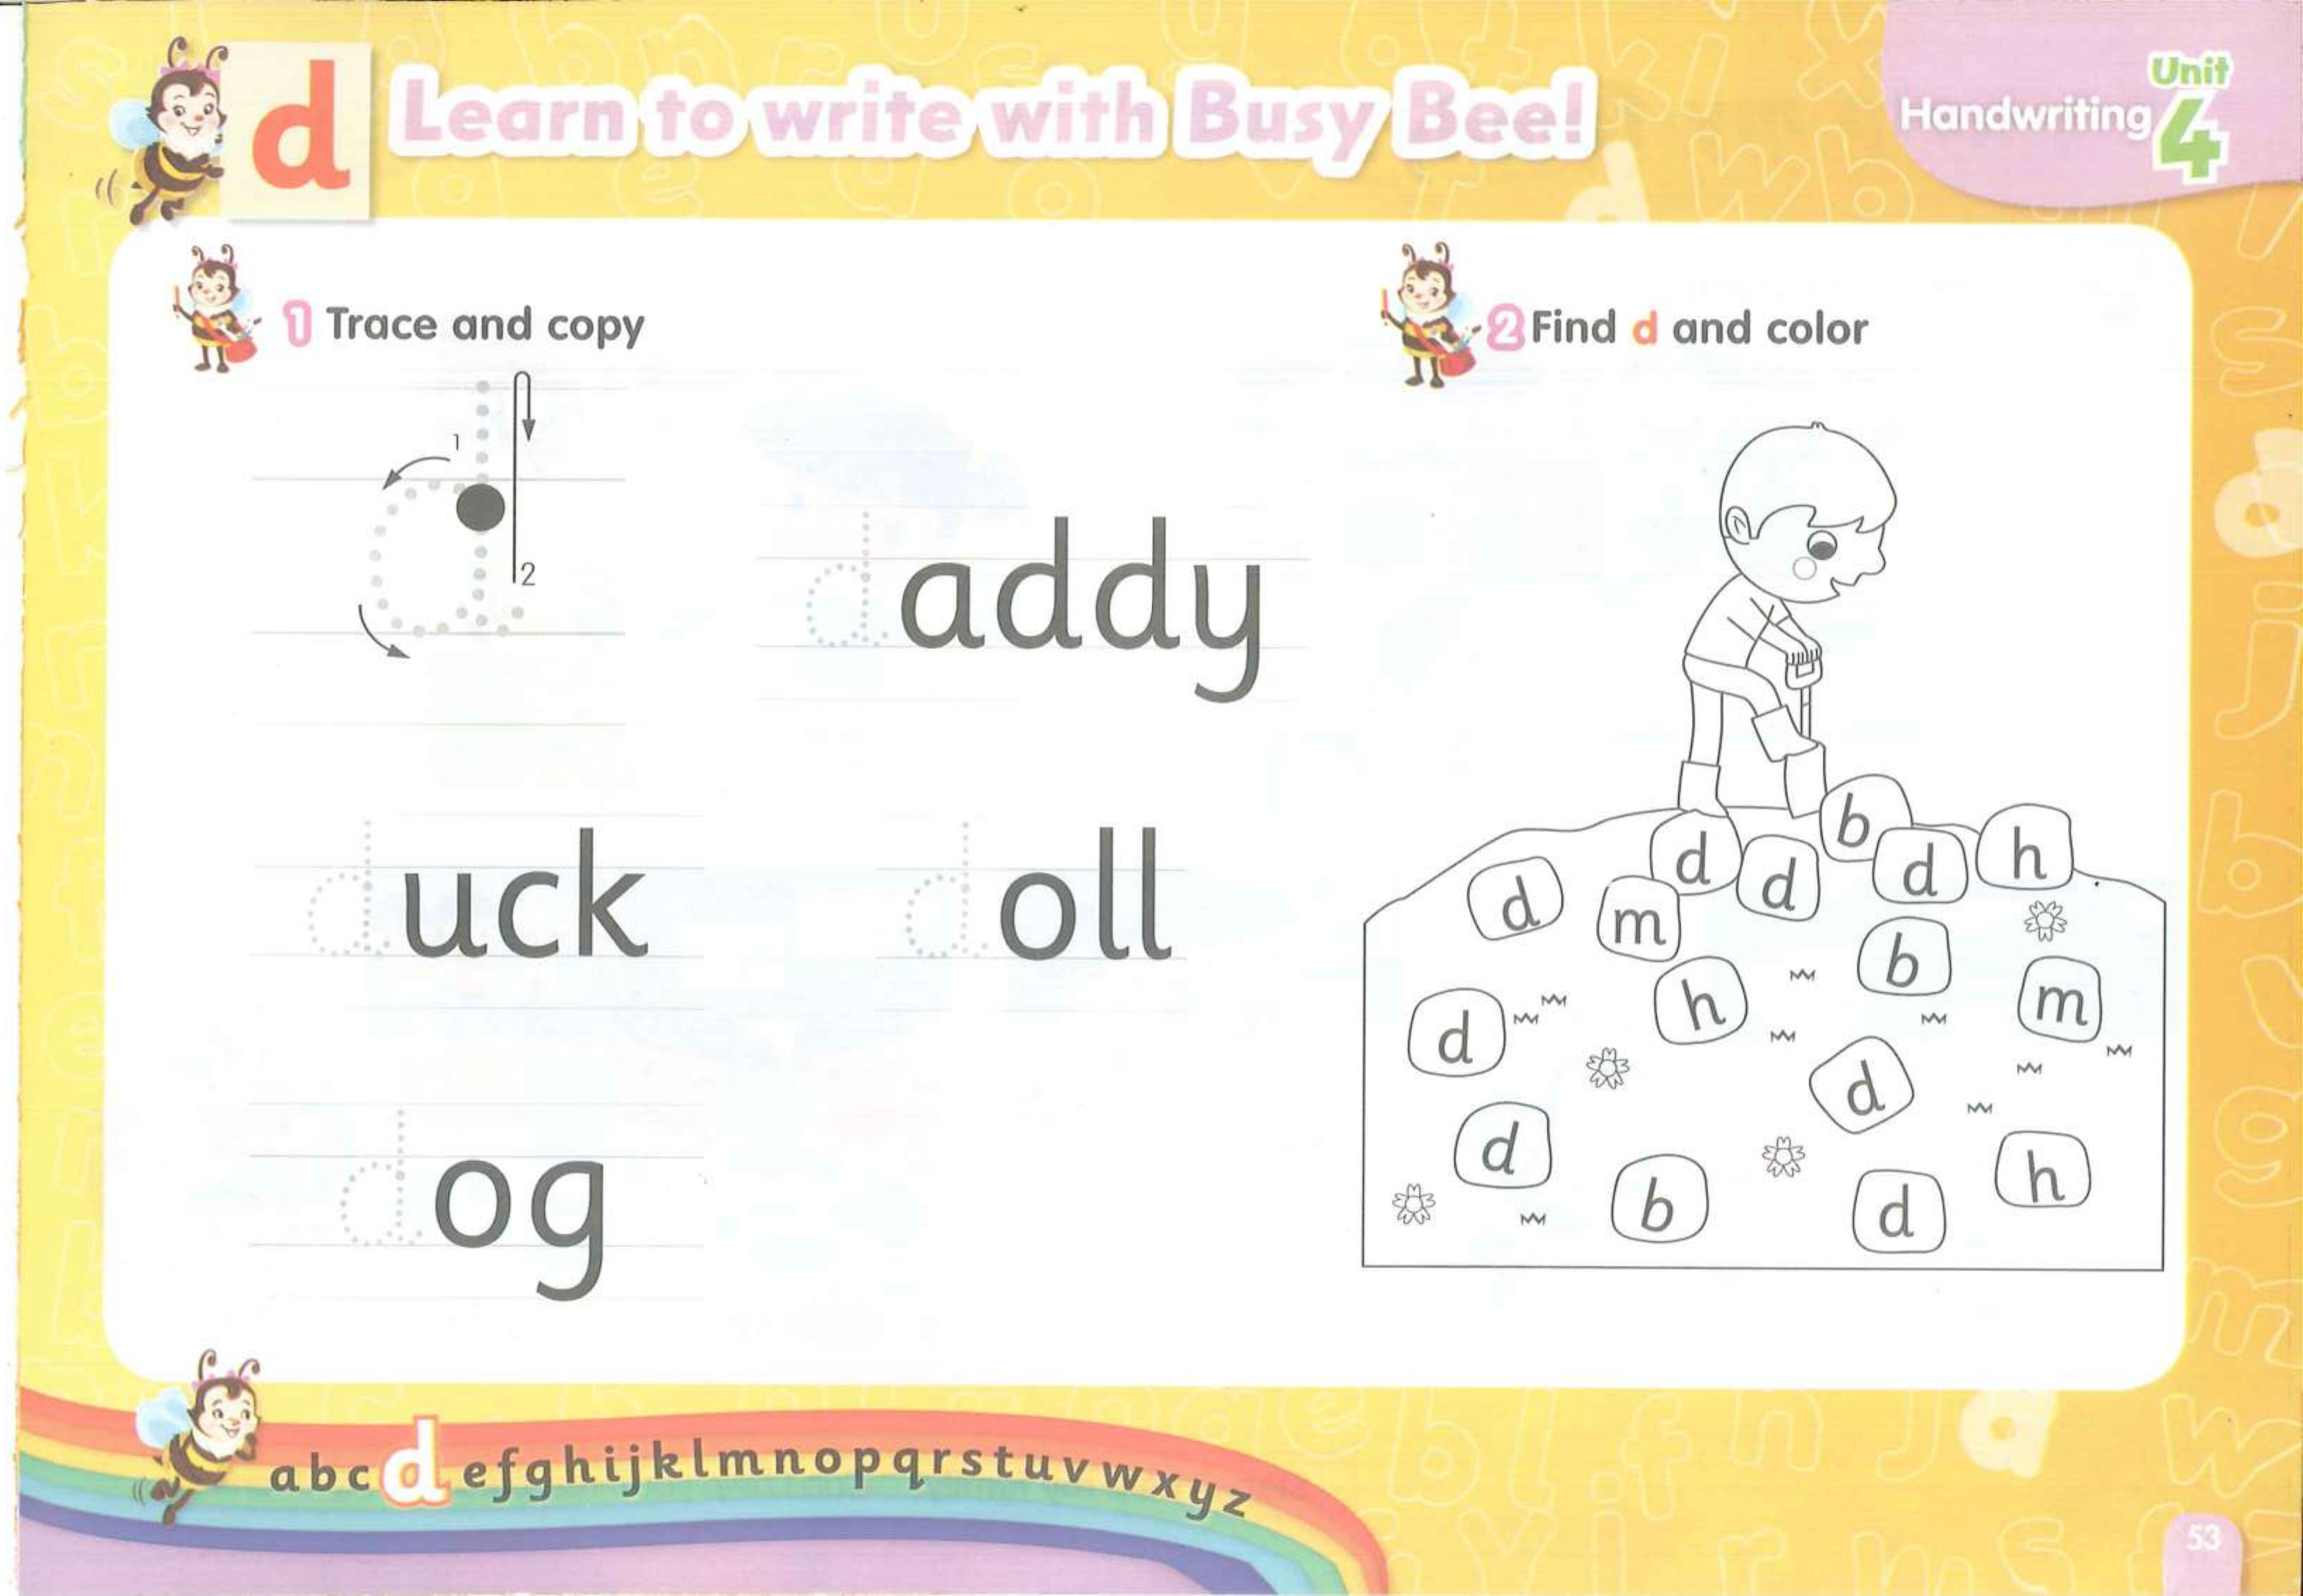 d Learn to write with Busy Bee!
Handwriting Unit 4
1 Trace and copy
1
2
d
daddy
duck doll
dog
2 Find d and color
b
d d d h
d m
b
d h m
d
d h
b d
a b c d e f g h i j k l m n o p q r s t u v w x y z
53